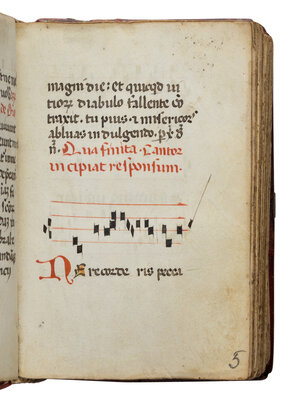 magni die: et quicqd ui
tiorꝫ diabulo fallente cō
traxit. tu pius. i misericors
abluas in dulgendo. p x̄
n̄. Qua finita. Cantor
in cipiat responsum.
Ne recorde ris pecca
5